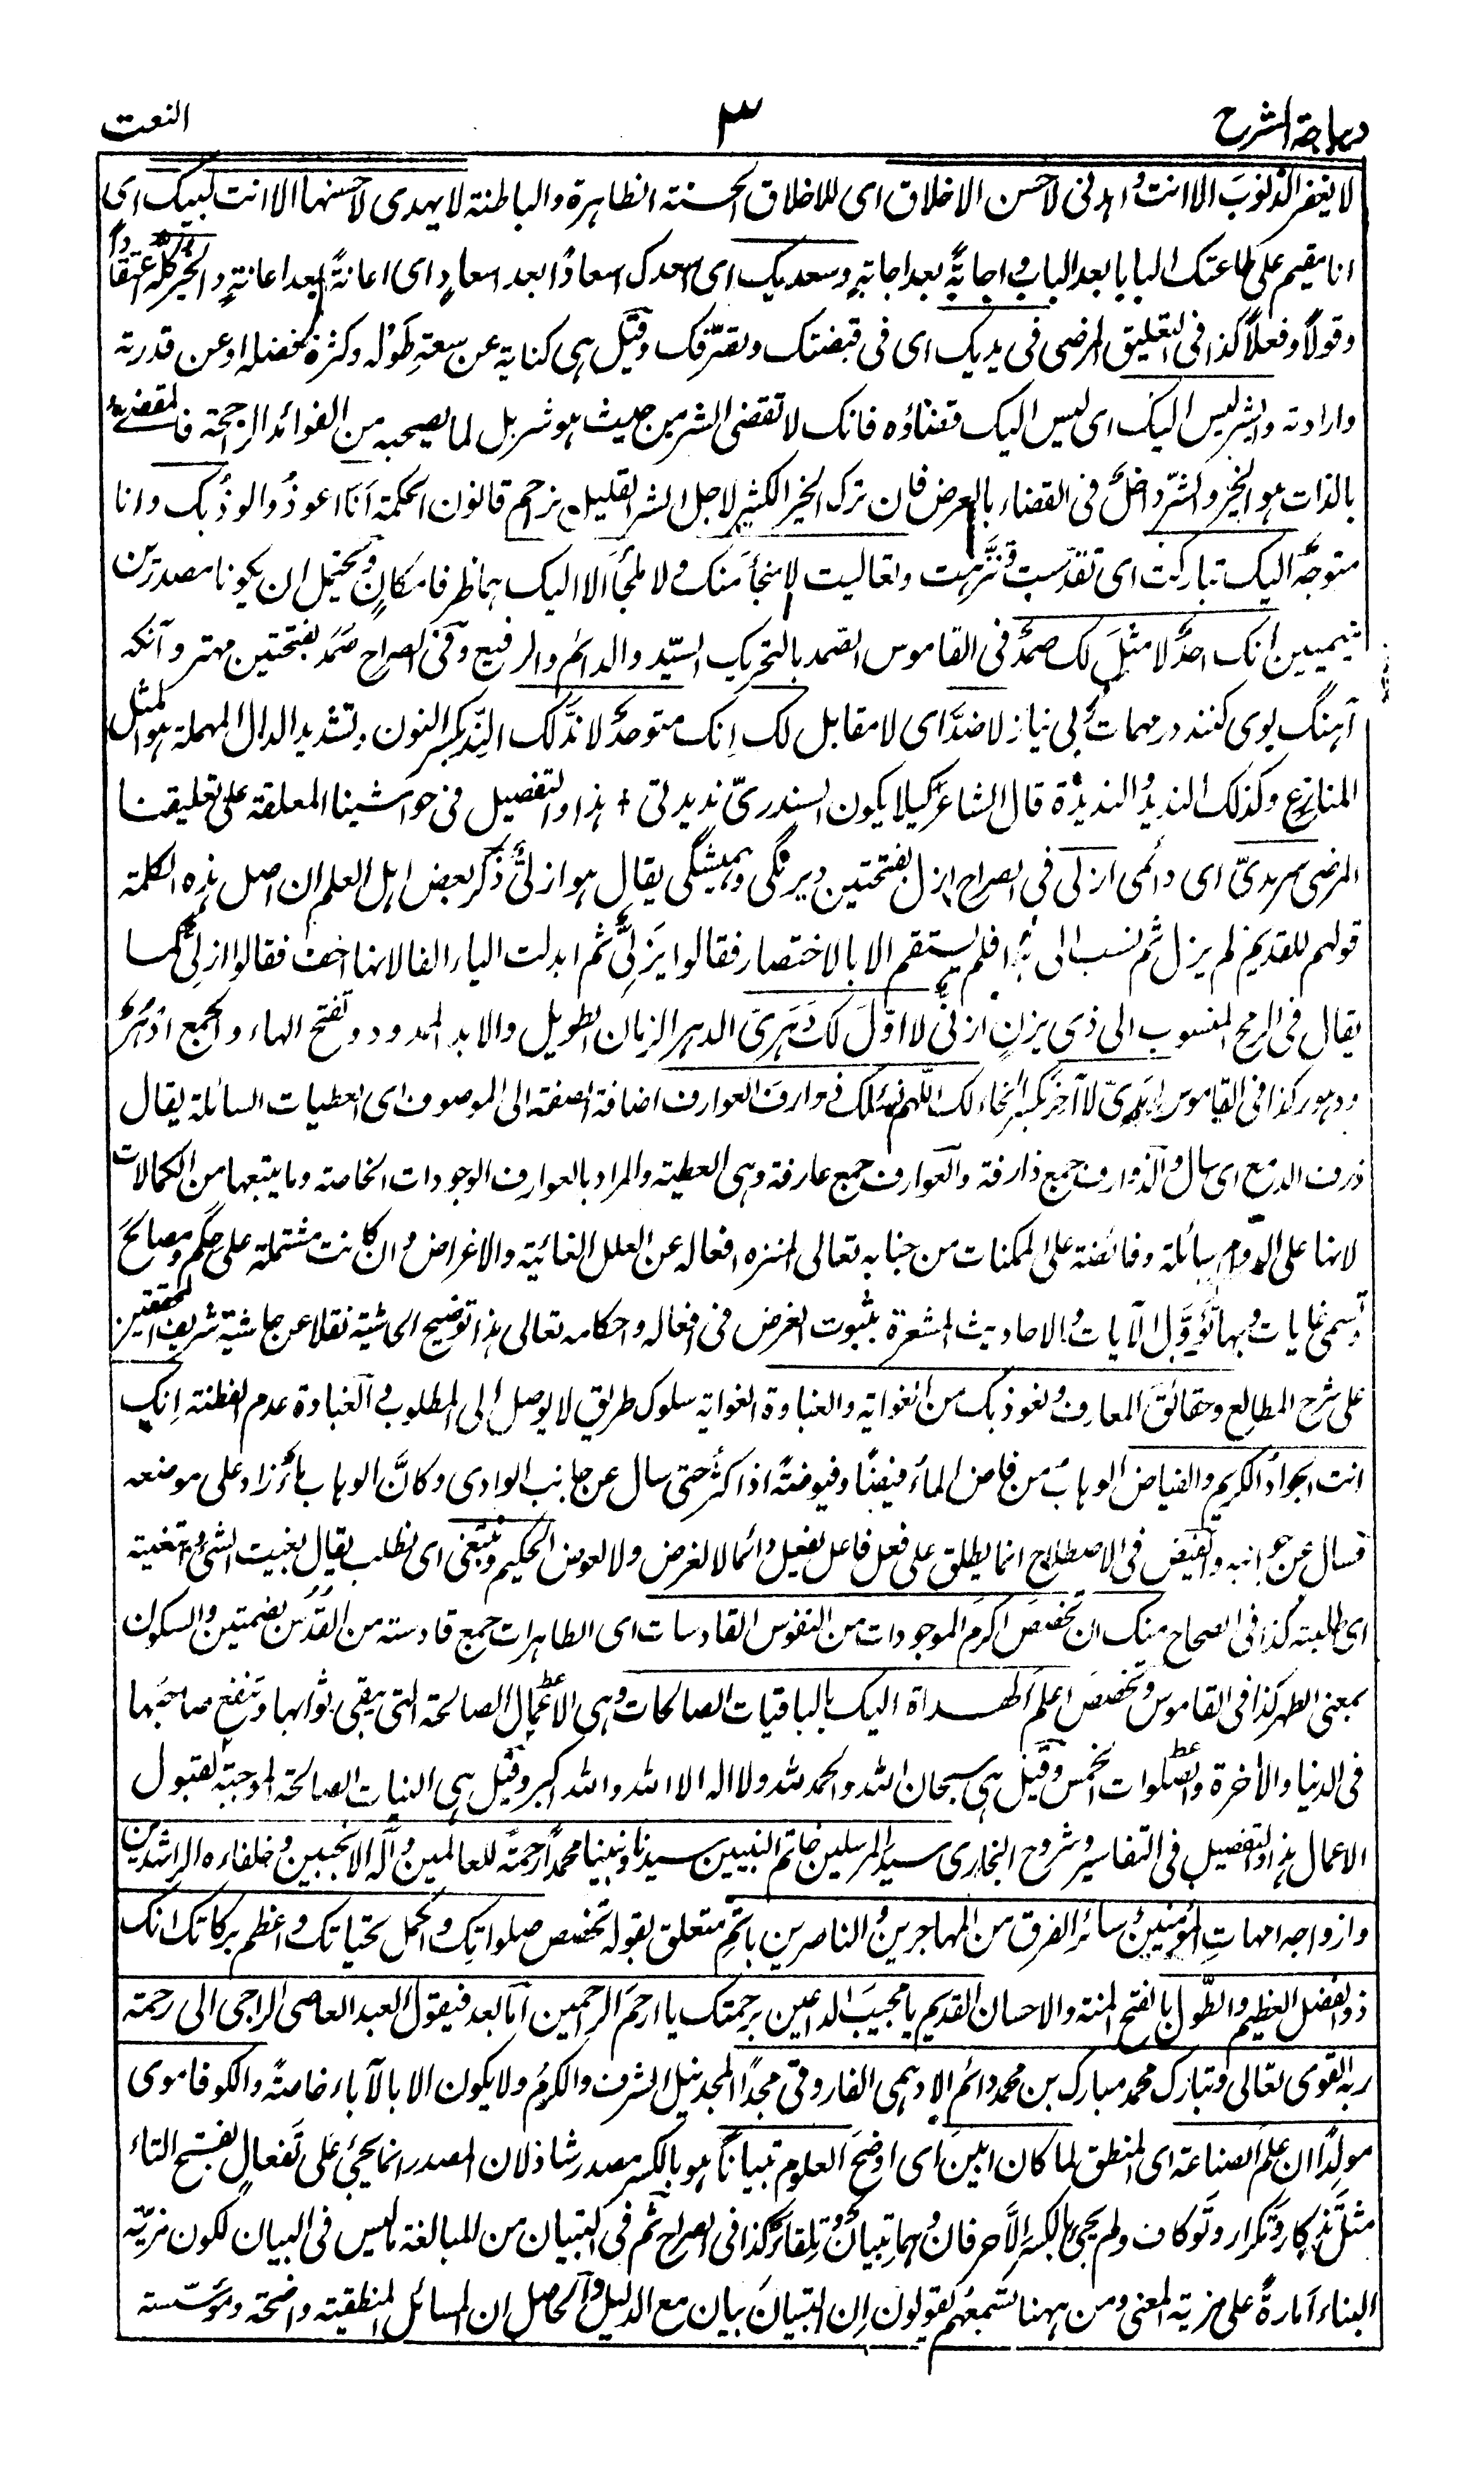 ديباجة الشرح
٣
النعت
لا يغفر الذنوبَ الا انت واهدنى لاحسن الاخلاق اى للاخلاق الحسنة الظاهرة والباطنة لا يهدى لاحسنها الا انت لبيك اى
انا مقيم على طاعتك البابا بعد الباب واجابةً بعد اجابةٍ وسعديك اى اسعدك اسعادًا بعد اسعادٍ اى اعانةً بعد اعانةٍ والخير كلّه اعتقادًا
وقولاً وفعلاً كذا فى التعليق المرضى فى يديك اى فى قبضتك وتصرّفك وقيل هى كناية عن سعةِ طَوْله وكثرة فضله او عن قدرته
وارادته والشر ليس اليك اى ليس اليك قضاؤه فانك لا تقضى الشر من حيث هو شر بل لما يصحبه من الفوائد الراجحة فالمقضى
بالذات هو الخير والشرّ داخلٌ فى القضاء بالعرض فان ترك الخير الكثير لاجل الشر القليل قانون الحكمة أنَا اعوذُ والوذُ بك وانا
متوجّهٌ اليك تباركت اى تقدّست وتنزّهت وتعاليت لا منجأ منك ولا ملجأ الا اليك هما ظرفا مكانٍ ويحتمل ان يكونا مصدرين
ميميين انك احدٌ لا مثلَ لك صمدٌ فى القاموس الصمد بالتحريك السيّد والدائم والرفيع وفى الصراح صَمَد بفتحتين مهتر وآنكه
آهنگ بوى كنند در مهمات وبى نياز لا ضدَّ اى لا مقابل لك اِنك متوحدٌ لا ندَّ لك النِّد بكسر النون وتشديد الدال المهملة هو المثل
المنازع وكذلك النديدُ والنديدة قال الشاعر كيلا يكون السندرىّ نديدتى + هذا والتفصيل فى حواشينا المعلقة على تعليقنا
المرضى سرمدىّ اى دائمى ازلى فى الصراح ازل بفتحتين ديرنگى وهميشگى يقال هو ازلىٌّ ذكر بعض اهل العلم ان اصل هذه الكلمة
قولهم للقديم لم يزل ثم نسب الى هذا فلم يستقم الا بالاختصار فقالوا يَزَلِىٌّ ثم ابدلت الياء الفا لانها اخف فقالوا ازلىٌّ كما
يقال فى الرمح المنسوب الى ذى يزن ازنىٌّ لا اوّلَ لك دَهَرىّ الدهر الزمان الطويل والابد الممدود وتفتح الهاء والجمع ادهُرٌ
ودهور كذا فى القاموس ابدىّ لا آخِرَ بكسر الخاء لك اللّهم نسئلك ذوارفَ العوارف اضافة الصفة الى الموصوف اى العطيات السائلة يقال
ذرف الدمع اى سال والذوارف جمع ذارفة والعوارف جمع عارفة وهى العطية والمراد بالعوارف الوجودات الخاصة وما يتبعها من الكمالات
لانها على الدوام سائلة وفائضة على الممكنات من جنابه تعالى المنزه افعاله عن العلل الغائية والاغراض وان كانت مشتملة على حِكَم ومصالح
وتسمى غايات وبها تُؤوَّل الآيات والاحاديث المشعرة بثبوت الغرض فى افعاله واحكامه تعالى هذا توضيح الحاشية نقلا عن حاشية شريف المحققين
على شرح المطالع وحقائقَ المعارف ونعوذ بك من الغواية والغباوة الغواية سلوك طريق لا يوصل الى المطلوب والغباوة عدم الفطنة اِنك
انت الجوادُ الكريم والفياض الوهابُ من فاض الماءُ فيضًا وفيوضةً اذا كثر حتى سال عن جانب الوادى وكانَّ الوهاب ماءٌ زاد على موضعه
فسال عن جوانبه والفيض فى الاصطلاح انما يطلق على فعل فاعل يفعل دائما لا لغرض ولا لعوض الحكيم ونبتغى اى نطلب يقال بغيت الشئ وابتغيته
اى طلبته كذا فى الصحاح منك ان تخصّصَ اكرمَ الموجودات من النفوس القادسات اى الطاهرات جمع قادسة من القُدُس بضمتين والسكون
بمعنى الطهر كذا فى القاموس وتخصّصَ اعلم الهداة اليك بالباقيات الصالحات وهى الاعمال الصالحة التى يبقى ثوابها وتنفع صاحبَها
فى الدنيا والأخرة والصلوات الخمس وقيل هى سبحان الله والحمد لله ولا اله الا الله والله اكبر وقيل هى النيات الصالحة الموجبة لقبول
الاعمال هذا والتفصيل فى التفاسير وشروح البخارى سيد المرسلين خاتم النبيين سيدنا ونبينا محمدًا رحمةً للعالمين وآله الانجبين وخلفاءه الراشدين
وازواجه امهاتِ المؤمنين وسائر الفرق من المهاجرين والناصرين باتمِّ متعلق بقوله تخصص صلواتِك واكمل تحياتك واعظم بركاتك انك
ذو الفضل العظيم والطَّول بالفتح المنة والاحسان القديم يا مجيبَ الداعين برحمتك يا ارحمَ الرحمين امّا بعد فيقول العبد العاصى الراجى الى رحمة
ربه القوى تعالى وتبارك محمد مبارك بن محمد دائم الادهمى الفاروقى مجدًا المجد نيل الشرف والكرمُ ولا يكون الا بالآباء خاصةً والكوفاموى
مولدًا ان علمَ الصناعة اى المنطق لما كان ابينَ اى اوضحَ العلوم تبيانًا هو بالكسر مصدر شاذ لان المصدر انما يجئ على تَفعالٍ بفتح التاء
مثل تَذكار وتَكرار وتَوكاف ولم يجئ بالكسر الا حرفان وهما تِبيانٌ وتِلقاءٌ كذا فى الصراح ثم فى التبيان من المبالغة ما ليس فى البيان لكون مزيّة
البناء امارةً على مزية المعنى ومن ههنا تسمعُهم يقولون اِن التبيانَ بيان مع الدليل والحاصل ان المسائل المنطقية واضحة ومؤسّسة